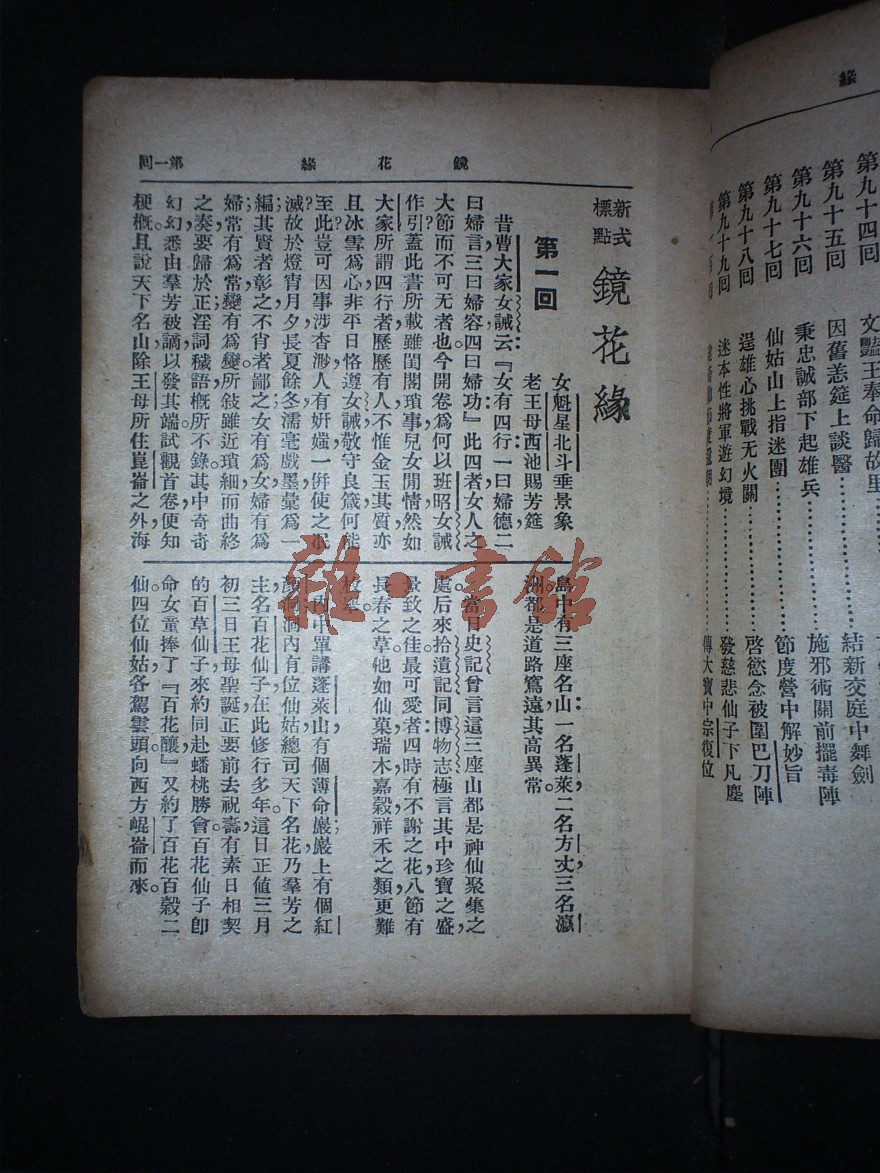 緣
第九十四回 文豔王奉命歸故里 結新交庭中舞劍
第九十五回 因舊恙筵上談醫
第九十六回 秉忠誠部下起雄兵 施邪術關前擺毒陣
第九十七回 仙姑山上指迷團 節度營中解妙旨
第九十八回 逞雄心挑戰无火關 啓慾念被圍巴刀陣
第九十九回 迷本性將軍遊幻境 發慈悲仙子下凡塵
傳大寶中宗復位
鏡花緣 第一回
新式標點 鏡花緣
第一回
女魁星北斗垂景象
老王母西池賜芳筵
昔曹大家女誡云：『女有四行：一曰婦德，二
曰婦言，三曰婦容，四曰婦功』此四者，女人之
大節而不可无者也。今開卷，爲何以班昭女誡
作引？蓋此書所載，雖閨閣瑣事，兒女閒情，然如
大家所謂四行者，歷歷有人，不惟金玉其質，亦
且冰雪爲心，非平日恪遵女誡，敬守良箴，何能
至此？豈可因事涉杳渺，人有妍媸，一倂使之泯
滅？故於燈宵月夕，長夏餘冬，濡毫戲墨，彙爲一
編；其賢者彰之，不肖者鄙之；女有爲女，婦有爲
婦；常有爲常，變有爲變。所敍雖近瑣細，而曲終
之奏，要歸於正，淫詞穢語，槪所不錄。其中奇奇
幻幻，悉由羣芳被謫，以發其端，試觀首卷，便知
梗槪。且說天下名山，除王母所住崑崙之外，海
島中有三座名山：一名蓬萊，二名方丈，三名瀛
洲，都是道路窵遠，其高異常。
當日史記曾言這三座山都是神仙聚集之
處。后來拾遺記同博物志極言其中珍寶之盛，
景致之佳。最可愛者：四時有不謝之花，八節有
長春之草。他如仙菓，瑞木，嘉穀，祥禾之類，更難
枚舉。
內中單講蓬萊山有個薄命巖，巖上有個紅
顏洞，洞內有位仙姑，總司天下名花，乃羣芳之
主，名百花仙子，在此修行多年。這日正値三月
初三日王母聖誕，正要前去祝壽，有素日相契
的百草仙子來約同赴蟠桃勝會。百花仙子卽
命女童捧了『百花釀』，又約了百花百穀二
仙。四位仙姑，各駕雲頭，向西方崐崙而來。
雜·書館